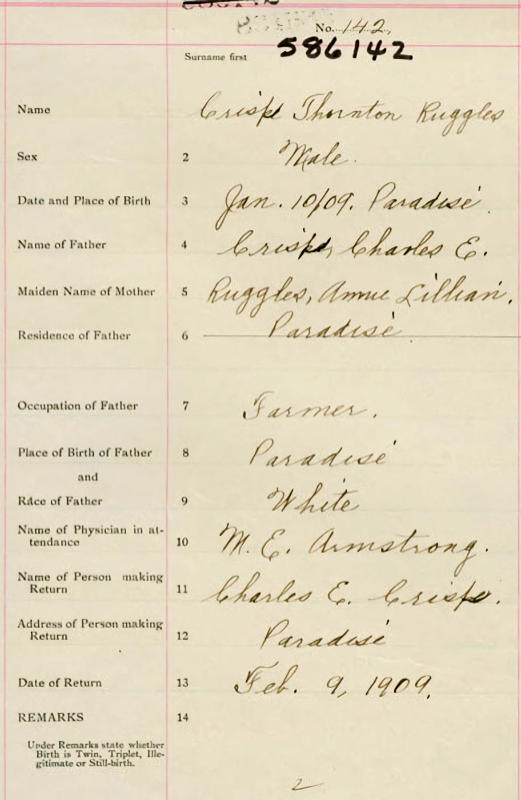 No. 142
586142
Surname first
Name Crisp Thornton Ruggles
Sex 2 Male.
Date and Place of Birth 3 Jan. 10/09. Paradise
Name of Father 4 Crisp, Charles E.
Maiden Name of Mother 5 Ruggles, Annie Lillian.
Residence of Father 6 Paradise
Occupation of Father 7 Farmer.
Place of Birth of Father 8 Paradise
and
Race of Father 9 White
Name of Physician in at-
tendance 10 M. E. Armstrong.
Name of Person making
Return 11 Charles E. Crisp.
Address of Person making
Return 12 Paradise
Date of Return 13 Feb. 9, 1909.
REMARKS 14
Under Remarks state whether
Birth is Twin, Triplet, Ille-
gitimate or Still-birth.
2